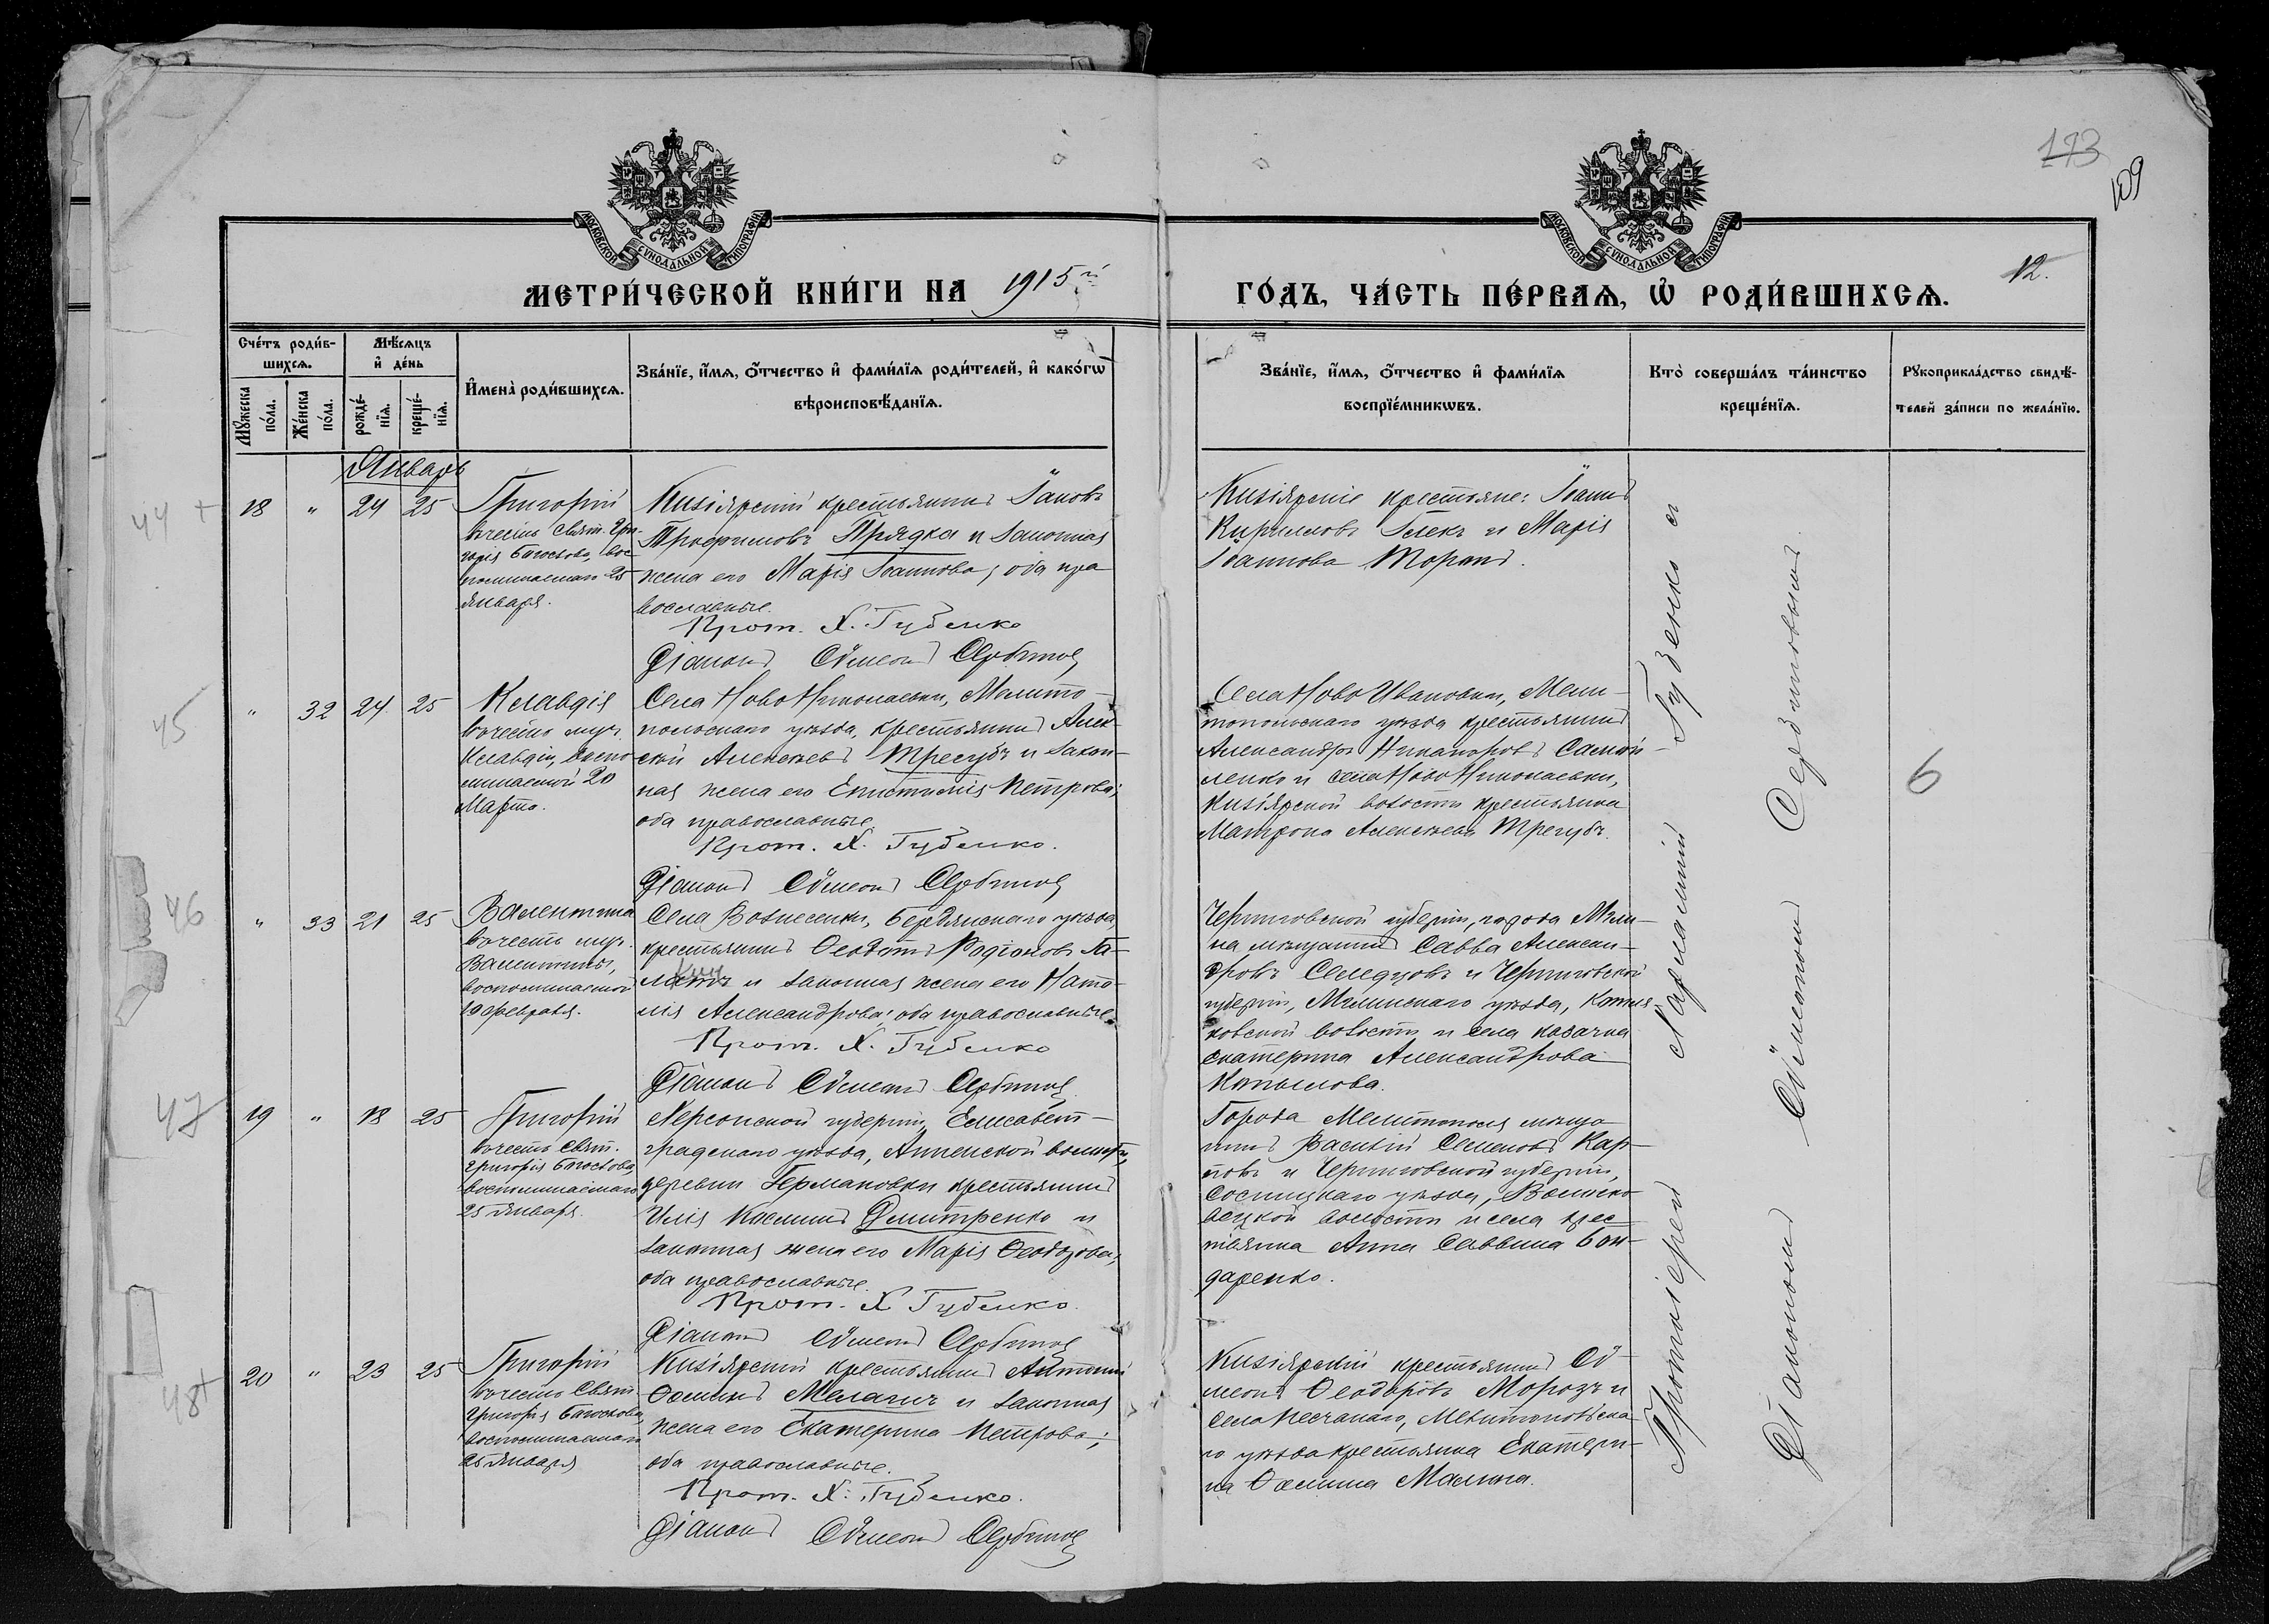 173
109
МОСКОВСКОЙ СѴНОДАЛЬНОЙ ТИПОГРАФІИ
МОСКОВСКОЙ СѴНОДАЛЬНОЙ ТИПОГРАФІИ
МЕТРИ́ЧЕСКОЙ КНИ́ГИ НА 1915й
ГО́ДЪ, ЧА́СТЬ ПЕ́РВАѦ, Ѽ РОДИ́ВШИХСѦ.
12.
Сче́тъ роди́в-
шихсѧ.
Мѣ́сѧцъ
и҆ де́нь
Мꙋ́жеска по́ла.
Же́нска по́ла.
рожде́-
нїѧ.
креще́-
нїѧ.
И҆мена̀ роди́вшихсѧ.
Зва́нїе, и҆́мѧ, ѻ҆́тчество и҆ фами́лїѧ роди́телей, и҆ како́гѡ
вѣроисповѣ́данїѧ.
Зва́нїе, и҆́мѧ, ѻ҆́тчество и҆ фами́лїѧ
воспрїе́мникѡвъ.
Кто̀ соверша́лъ та́инство
креще́нїѧ.
Рꙋкоприкла́дство свидѣ́-
телей за́писи по жела́нїю.
Январь
44 +
18 " 24 25
Григорій
въ честь Свят. Гри-
горія Богослова, вос-
поминаемаго 25
января.
Кизіярскій крестьянинъ Іаковъ
Трофимовъ Прядка и законная
жена его Марія Іоаннова, оба пра
вославные.
Прот. Х. Губенко
Діаконъ Сѵмеонъ Сербиновъ
Кизіярскіе крестьяне: Іоаннъ
Кирилловъ Гелехъ и Марія
Іоаннова Моранъ.
45
" 32 24 25
Клавдія
въ честь муч.
Клавдіи, воспо-
минаемой 20
Марта.
Села НовоНиколаевки, Мелито-
польскаго уѣзда, крестьянинъ Алек-
сѣй Алексѣевъ Трегубъ и закон-
ная жена его Епистимія Петрова;
оба православные.
Прот. Х. Губенко.
Діаконъ Сѵмеонъ Сербиновъ
Села НовоИвановки, Мели-
топольскаго уѣзда крестьянинъ
Александръ Никаноровъ Самой-
ленко и села НовоНиколаевки,
Кизіярской волости крестьянка
Матрона Алексѣева Трегубъ.
6
46
" 33 21 25
Валентина
въ честь муч.
Валентины,
воспоминаемой
10 февраля.
Села Вознесенки, Бердянскаго уѣзда,
крестьянинъ Ѳеодотъ Родіоновъ Га-
и законная жена его Ната-
лія Александрова; оба православные.
Прот. Х. Губенко
Діаконъ Сѵмеонъ Сербиновъ
Черниговской губерніи, города Мгли-
на мѣщанинъ Савва Алексан-
дровъ Селедцовъ и Черниговской
губерніи, Мглинскаго уѣзда,
волости и села казачка
Екатерина Александрова
Копылова.
47
19 " 18 25
Григорій
въ честь Свят.
Григорія Богослова
воспоминаемаго
25 Января.
Херсонской губерніи, Елисавет-
градскаго уѣзда, Анненской волости,
деревни Германовки крестьянинъ
Илія Космин Дмитренко и
законная жена его Марія Ѳеодорова;
оба православные.
Прот. Х Губенко.
Діаконъ Сѵмеонъ Сербиновъ
Города Мелитополя мѣща
нинъ Василій Семеновъ Кар-
повъ и Черниговской губерніи,
Сосницкаго уѣзда,
волости и села крес-
тьянка Анна Саввина Бон-
даренко.
48 +
20 " 23 25
Григорій
въ честь Свят
Григорія Богослова
воспоминаемаго
25 Января
Кизіярскій крестьянинъ Антоній
Ѳоминъ и законная
жена его Екатерина Петрова;
оба православные.
Прот. Х. Губенко.
Діаконъ Сѵмеонъ Сербиновъ
Кизіярскій крестьянинъ Сѵ-
меонъ Ѳеодоровъ Морозъ и
села Песчанаго, Мелитопольска-
го уѣзда крестьянка Екатери-
на Ѳомина Малина.
Протоіерей Харлампій Губенко съ
Діакономъ Сѵмеономъ Сербиновымъ